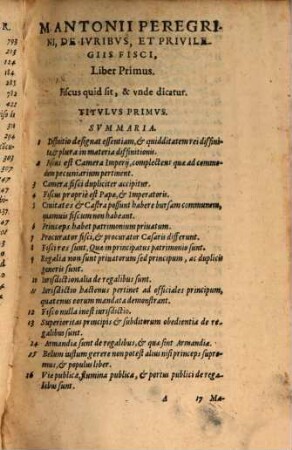 R.
793
MANTONII PEREGRI-
NI, DE IVRIBVS, ET PRIVILE-
GIIS FISCI,
Liber Primus.
Fiscus quid sit, & vnde dicatur.
TITVLVS PRIMVS.
SVMMARIA.
1 Diffinitio designat essentiam, & quidditatem rei diffini-
& plura in materia diffinitionis.
2 Fiscus est Camera Imperij, complectens quæ ad commo-
dum pecuniarium pertinent.
3 Camera fisci dupliciter accipitur.
4 Fiscus propriè est Papæ, & Imperatoris.
5 Ciuitates & Castra possunt habere bursam communem,
quamuis fiscum non habeant.
6 Princeps habet patrimonium priuatum.
7 Procurator fisci, & procurator Cæsaris differunt.
8 Fisci res sunt, Quæ in principatus patrimonio sunt.
9 Regalia non sunt priuatorum sed principum, ac duplicis
generis sunt.
10 Iurisdictionalia de regalibus sunt.
11 Iurisdictio hactenus pertinet ad officiales principum,
quatenus eorum mandata demonstrant.
12 Fisco nulla inest iurisdictio.
13 Superioritas principis & subditorum obedientia de re-
galibus sunt.
14 Armandia sunt de regalibus, & quæ sint Armandiæ.
15 Bellum iustum gerere non potest alius nisi princeps supre-
mus, & populus liber.
16 Viæ publicæ, flumina publica, & portus publici de rega
libus sunt.
A 17 Mo-